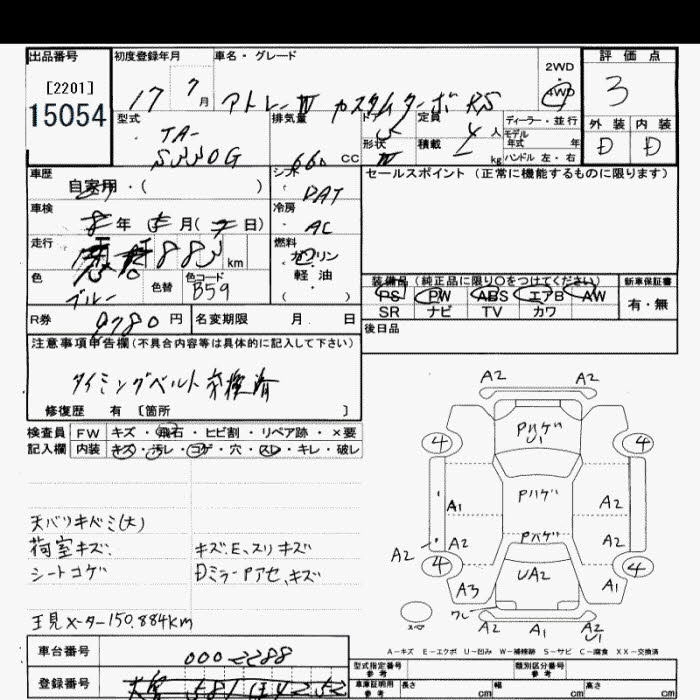 出品番号 初度登録年月 車名・グレード 評価点
[2201]
15054
17 7月 アトレーW カスタムターボRS
2WD・4WD
3
外装 内装
D D
型式 TA-
S330G
排気量 660 cc
ドア 5
形状
定員 4人
積載 kg
ディーラー・並行
モデル年式 年
ハンドル 左・右
車歴 自家用・( )
シフト DAT
セールスポイント(正常に機能するものに限ります)
車検 年 月( 日)
冷房 AC
走行 km
燃料 ガソリン
軽・油
( )
色 ブルー
色替
色コード B59
装備品(純正品に限り〇をつけてください)
PS PW ABS エアB AW
SR ナビ TV カワ
新車保証書
有・無
R券 9780円 名変期限 月 日
後日品
注意事項申告欄(不具合内容等は具体的に記入して下さい)
タイミングベルト交換済
修復歴 有 [箇所 ]
検査員 FW キズ・飛石・ヒビ割・リペア跡・×要
記入欄 内装 キズ・汚レ・コゲ・穴・スレ・キレ・破レ
天バリキバミ(大)
荷室キズ、 キズE、スリキズ
シートコゲ DミラーPアセ、キズ
現メーター150,884km
A2 A2
Pハゲ
U1
4 4
Pハゲ
A1 A2
Pハゲ
A2 A2 A2
4 4
UA2
A3 A1
クレ
スペア
A2 A1 A2
U1
A-キズ E-エクボ U-凹み W-補修跡 S-サビ C-腐食 XX-交換済
車台番号 0002288
型式指定番号 参考
類別区分番号 参考
登録番号
車庫証明用 参考 長さ cm 幅 cm 高さ cm